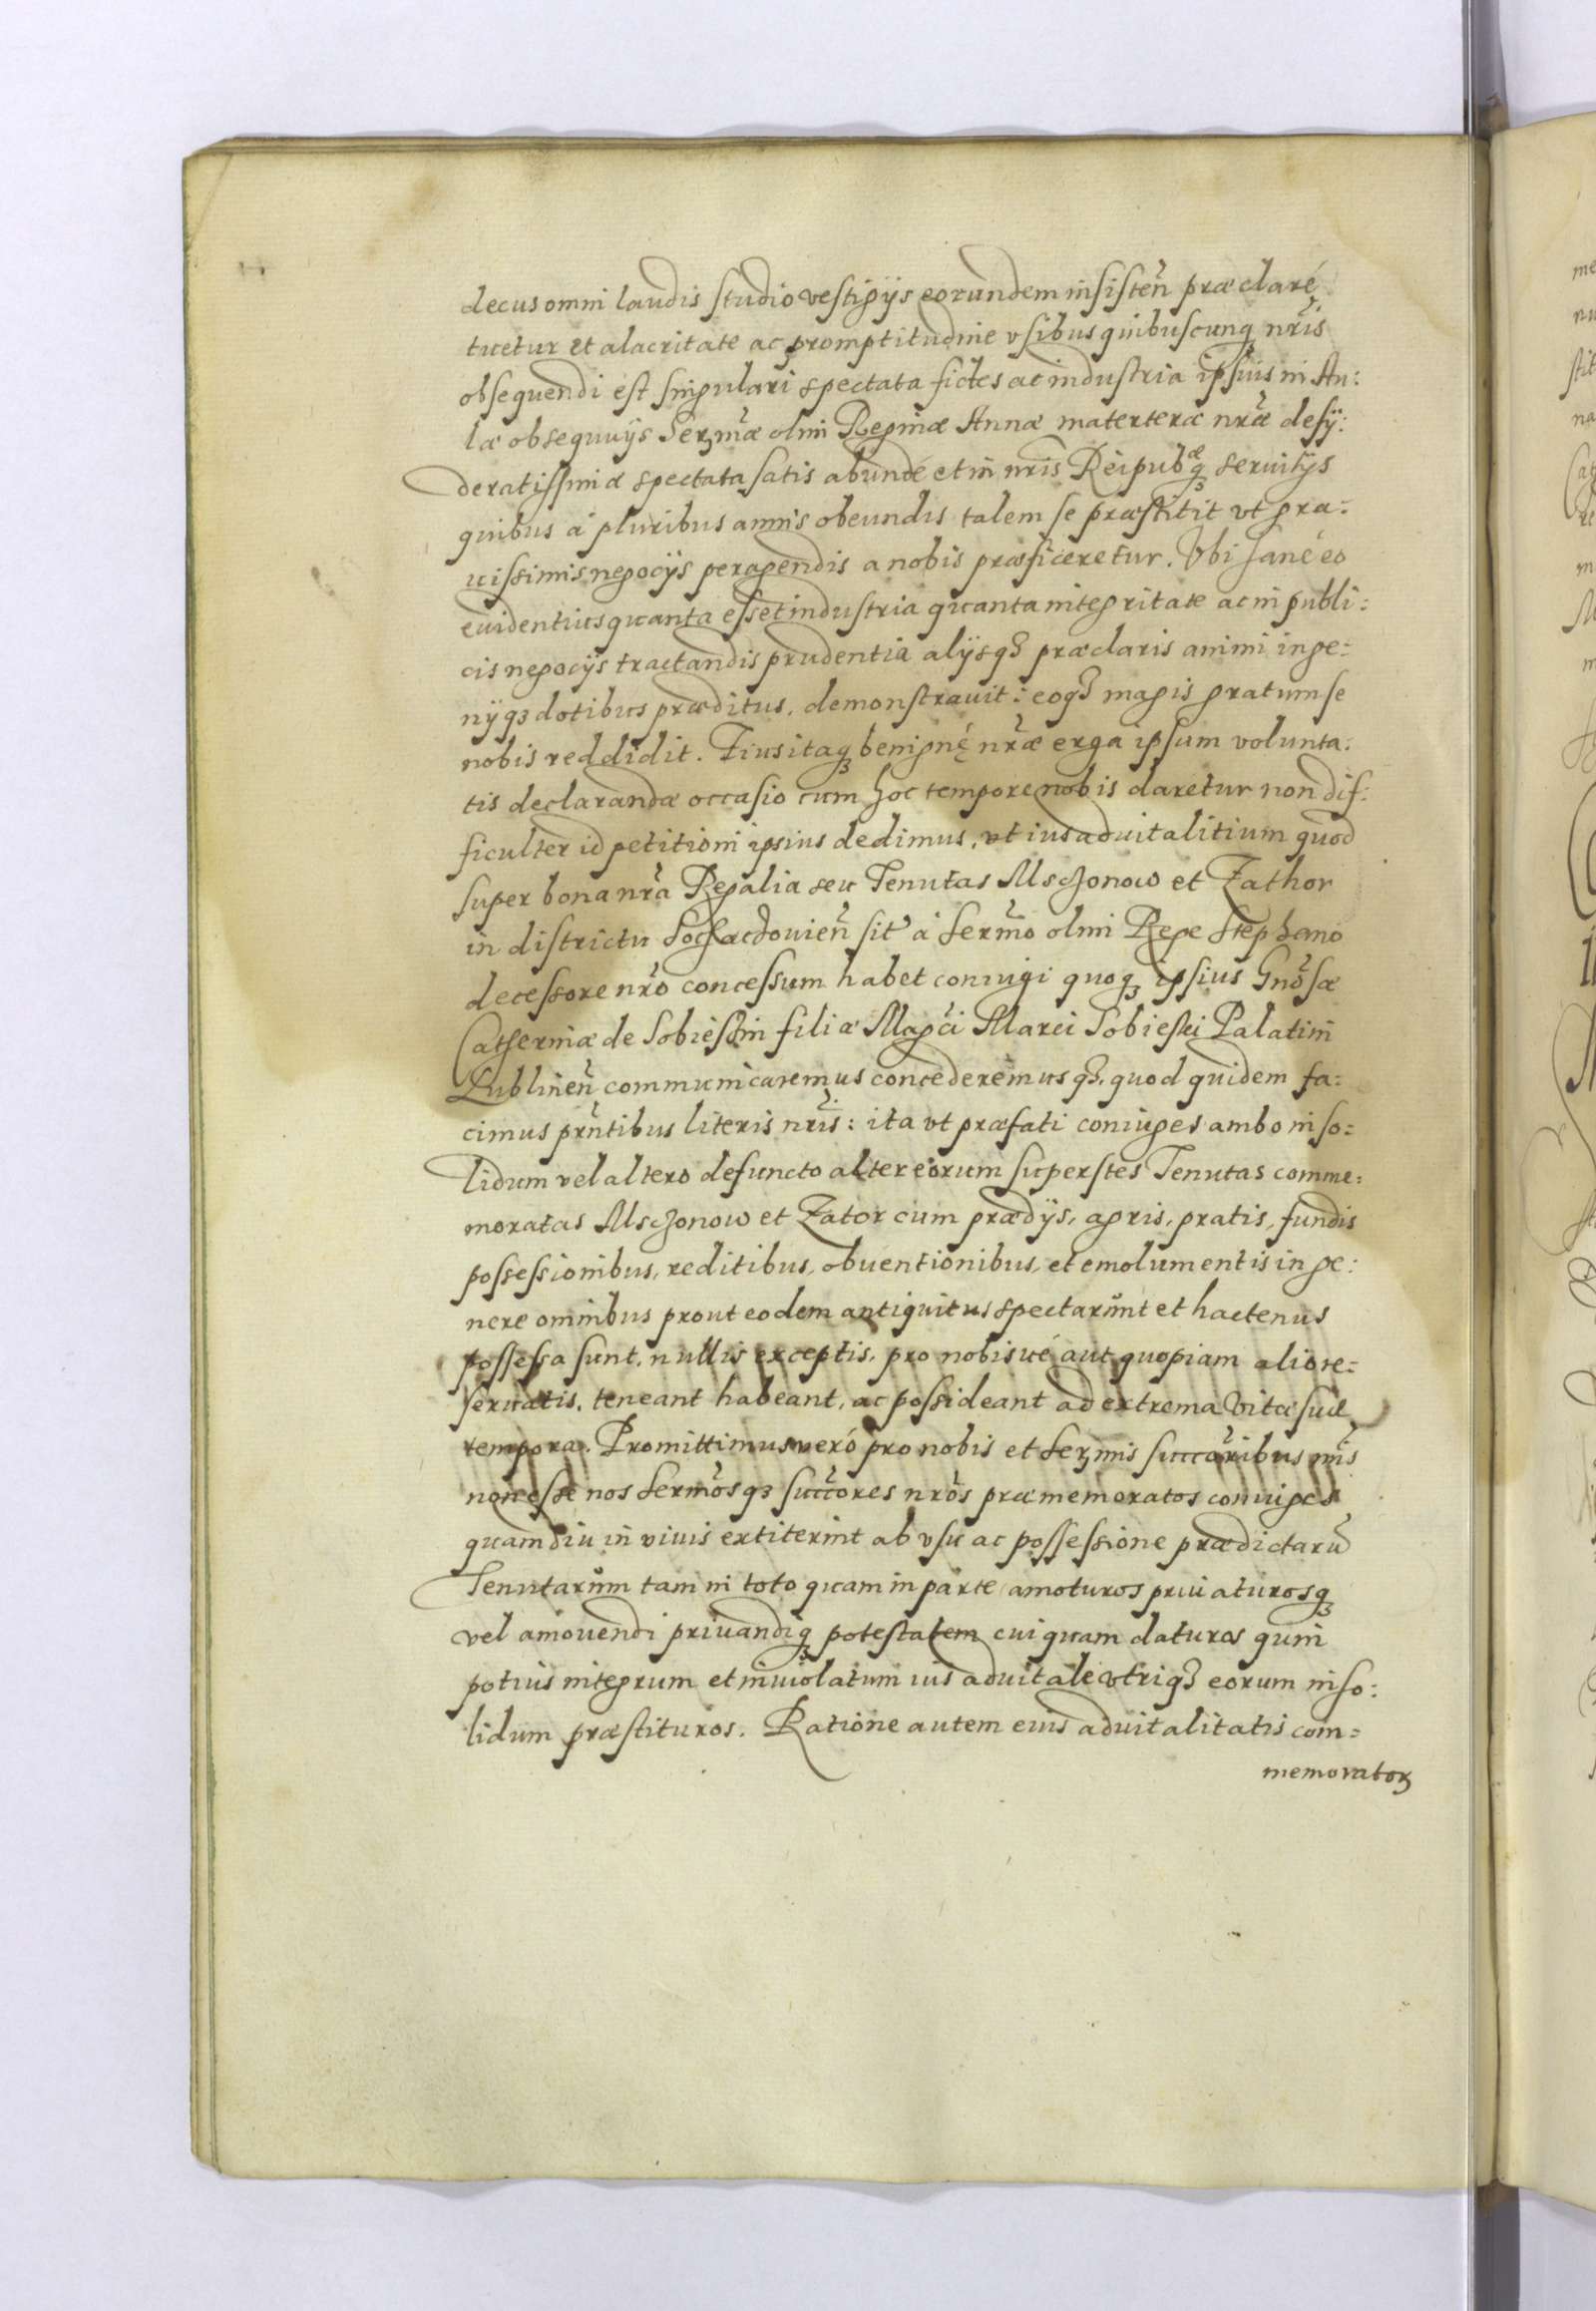 decus omni laudis studio vestigijs eorundem insisteñ præclaré
tuetur et alacritate ac promptitudine vsibus quibuscunq nr̃is
obsequendi est singulari spectata fides ac industria ipsius in Au:
læ obsequuijs Serm̃æ olim Reginæ Annæ materteræ nr̃æ desy:
deratissimæ spectata satis abundé et in nris Reipubæq seruitijs
quibus á pluribus annis obeundis talem se præstitit vt gra:
uissimis negocijs peragendis a nobis præficeretur. Vbi sané eo
euidentius quanta esset industria quanta integritate ac in publi:
cis negocijs tractandis prudentia alijsq præclaris animi inge:
nijq dotibus præditus, demonstrauit: eoq magis gratum se
nobis reddidit. Eius itaq benignę nr̃æ erga ipsum volunta:
tis declarandæ occasio cum hoc tempore nobis daretur non dif:
ficulter id petitioni ipsius dedimus, vt ius aduitalitium quod
super bona nr̃a Regalia seu Tenutas Mschonow et Zathor
in districtu Sochacdouieñ sit á Serm̃o olim Rege Stephano
decessore nr̃o concessum habet coniugi quoq ipsius Gnõsæ
Catherinæ de Sobieschin filiæ Magc̃i Marci Sobieski Palatini
Lublineñ communicaremus concederemusq, quod quidem fa:
cimus prñtibus literis nr̃is: ita vt præfati coniuges ambo in so:
lidum vel altero defuncto alter eorum superstes Tenutas comme:
moratas Mschonow et Zator cum prædijs, agris, pratis, fundis
possessionibus, reditibus, obuentionibus, et emolumentis in ge:
nere omnibus prout eodem antiquitus spectarunt et hactenus
possessa sunt, nullis exceptis, pro nobisué aut quopiam alio re:
seruatis, teneant habeant, ac possideant ad extrema vitæ suæ
tempora. Promittimus veró pro nobis et Sermis succõribus nr̃is
non esse nos Serm̃osq succ̃ores nr̃os præmemoratos coniuges
quamdiu in viuis extiterint ab vsu ac possessione prædictarũ
Tenutarum tam in toto quam in parte amoturos priuaturosq
vel amouendi priuandiq potestatem cuiquam daturos quin
potius integrum et inuiolatum ius aduitale vtriq eorum in so:
lidum præstituros. Ratione autem eius aduitalitatis com=
memorator